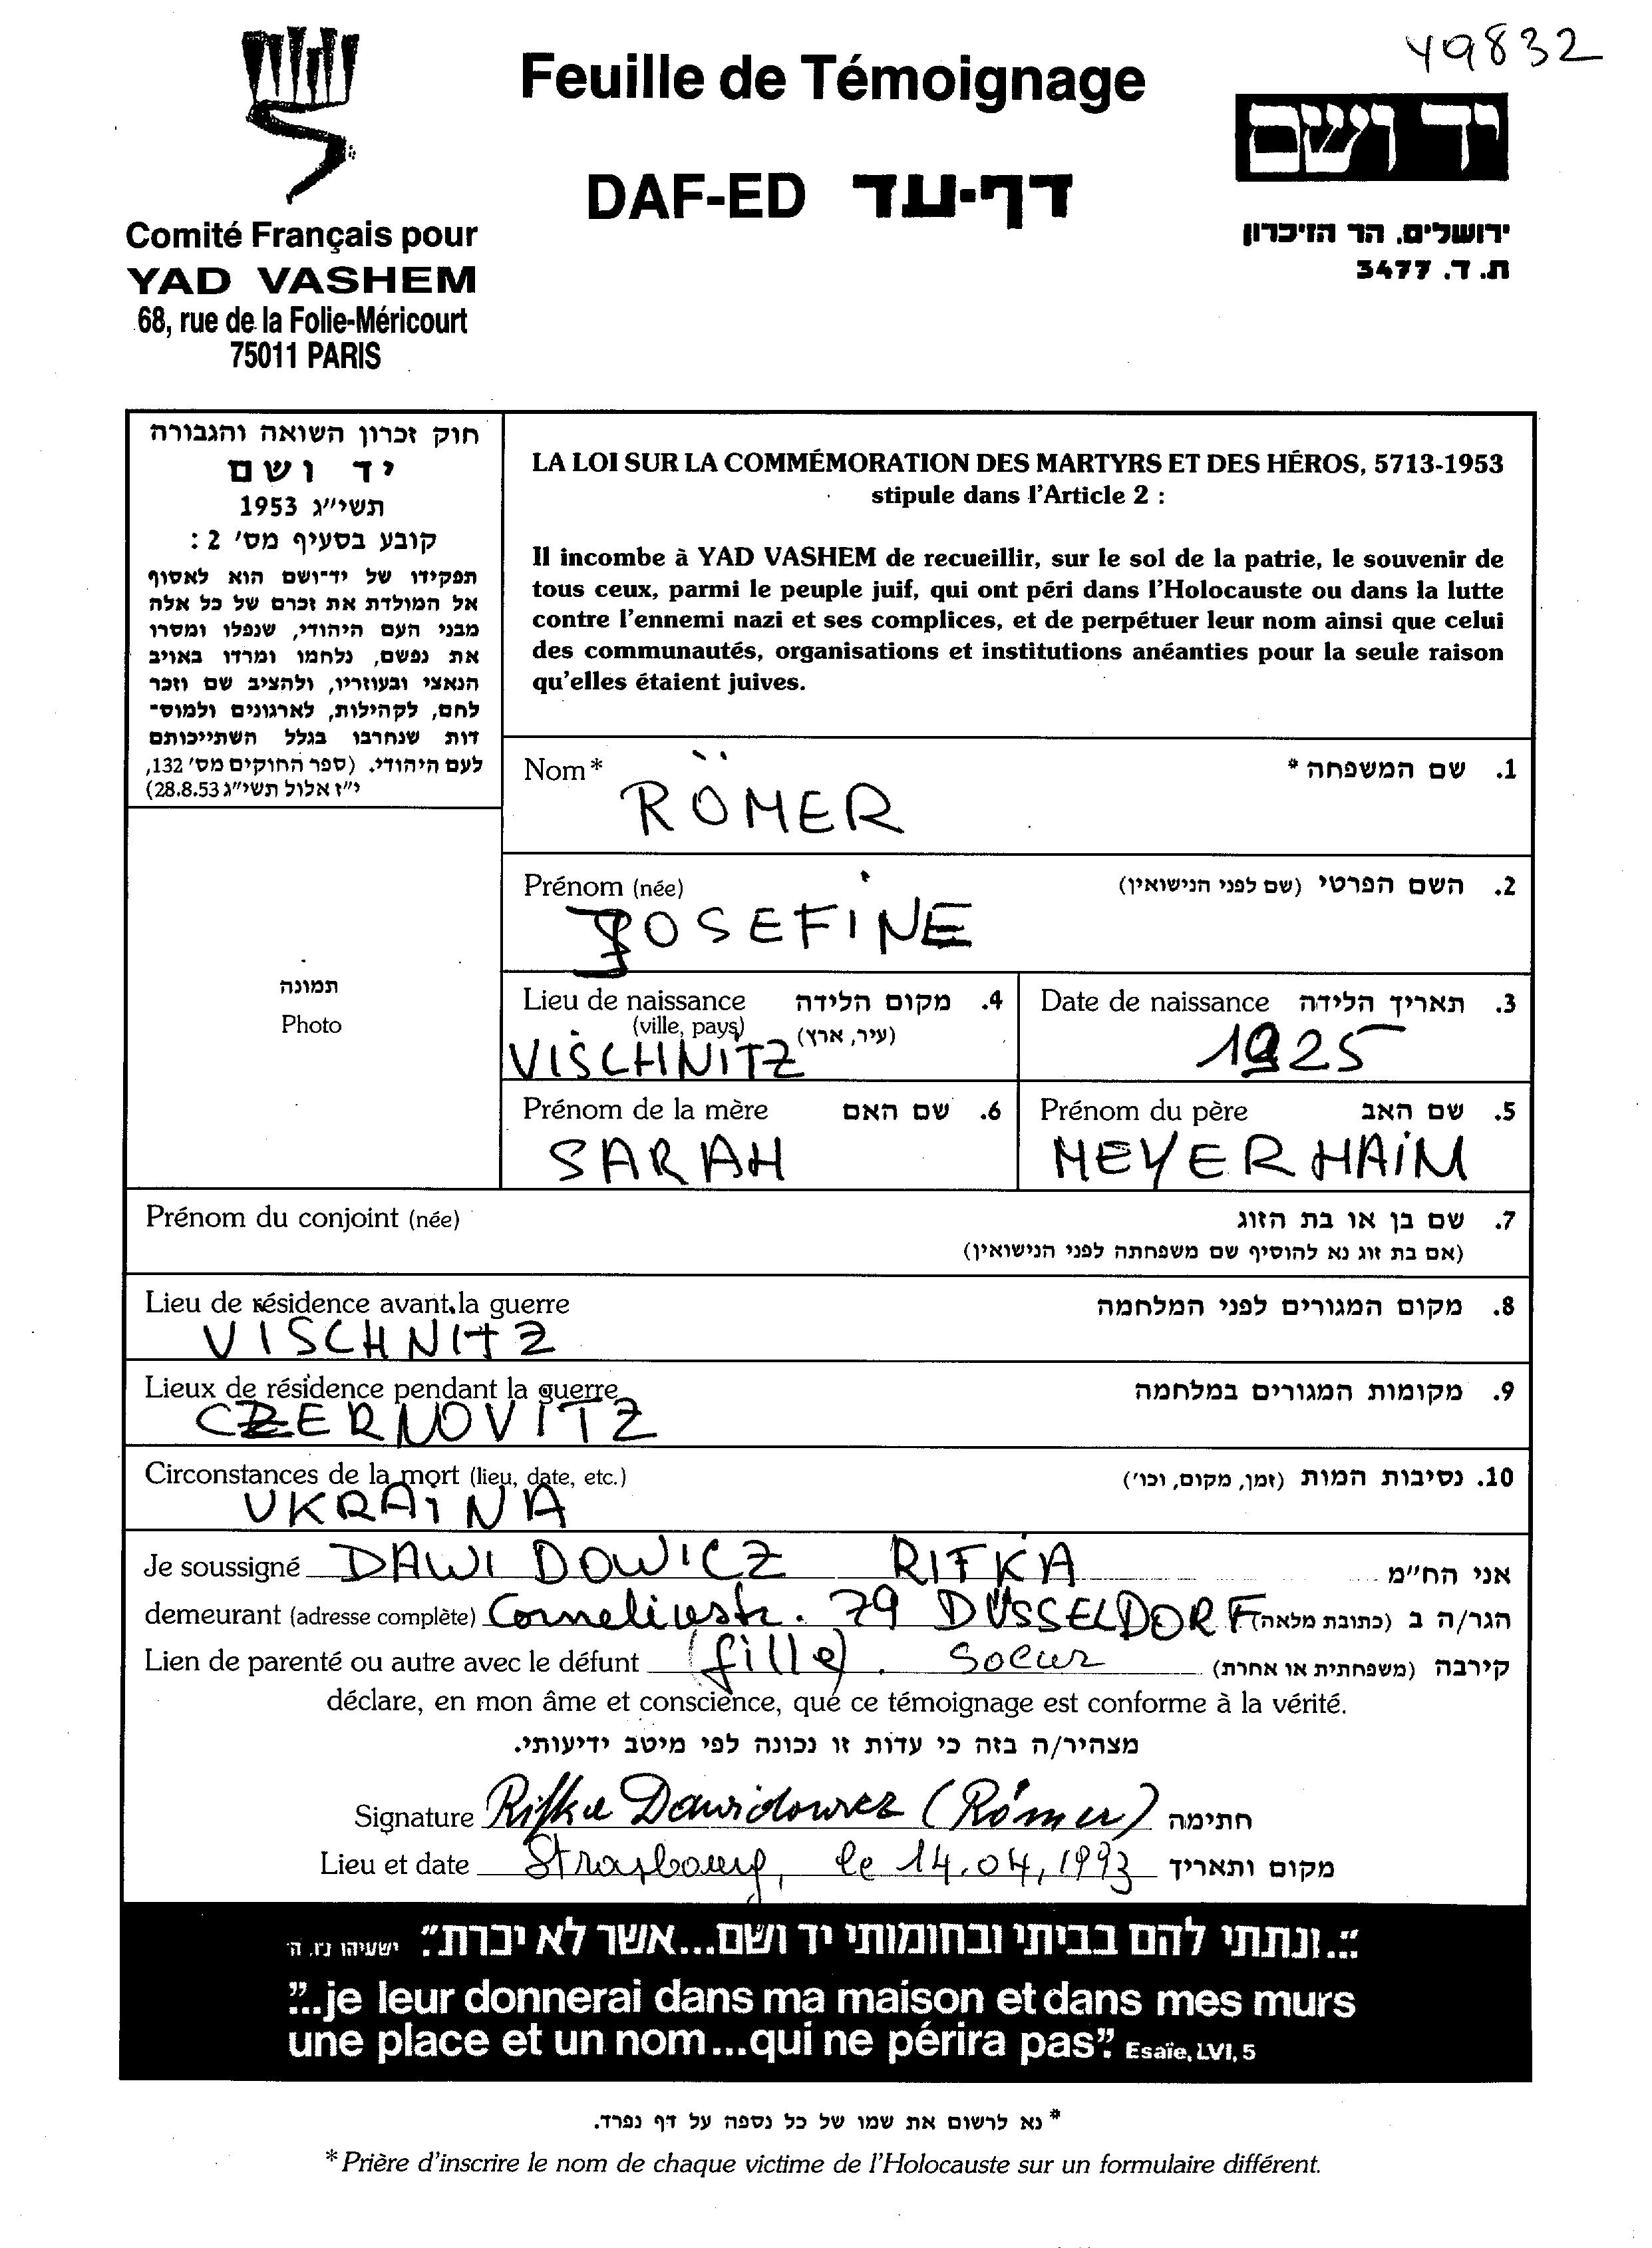 49832
Feuille de Témoignage
DAF-ED דף-עד
יד ושם
ירושלים. הר הזיכרון
ת. ד. 3477
Comité Français pour
YAD VASHEM
68, rue de la Folie-Méricourt
75011 PARIS
חוק זכרון השואה והגבורה
יד ושם
תשי״ג 1953
קובע בסעיף מס׳ 2 :
תפקידו של יד־ושם הוא לאסוף
אל המולדת את זכרם של כל אלה
מבני העם היהודי, שנפלו ומסרו
את נפשם, נלחמו ומרדו באויב
הנאצי ובעוזריו, ולהציב שם וזכר
להם, לקהילות, לארגונים ולמוס־
דות שנחרבו בגלל השתייכותם
לעם היהודי. (ספר החוקים מס׳ 132,
י״ז אלול תשי״ג 28.8.53)
LA LOI SUR LA COMMÉMORATION DES MARTYRS ET DES HÉROS, 5713-1953
stipule dans l'Article 2 :
Il incombe à YAD VASHEM de recueillir, sur le sol de la patrie, le souvenir de
tous ceux, parmi le peuple juif, qui ont péri dans l'Holocauste ou dans la lutte
contre l'ennemi nazi et ses complices, et de perpétuer leur nom ainsi que celui
des communautés, organisations et institutions anéanties pour la seule raison
qu'elles étaient juives.
Nom* 1. שם המשפחה *
RÖMER
Prénom (née) 2. השם הפרטי (שם לפני הנישואין)
JOSEFINE
תמונה
Photo
Lieu de naissance 4. מקום הלידה
(ville, pays) (עיר, ארץ)
VISCHNITZ
Date de naissance 3. תאריך הלידה
1925
Prénom de la mère 6. שם האם
SARAH
Prénom du père 5. שם האב
MEYER HAIM
Prénom du conjoint (née) 7. שם בן או בת הזוג
(אם בת זוג נא להוסיף שם משפחתה לפני הנישואין)
Lieu de résidence avant la guerre 8. מקום המגורים לפני המלחמה
VISCHNITZ
Lieux de résidence pendant la guerre 9. מקומות המגורים במלחמה
CZERNOVITZ
Circonstances de la mort (lieu, date, etc.) 10. נסיבות המות (זמן, מקום, וכו׳)
UKRAINA
Je soussigné DAWIDOWICZ RIFKA אני הח״מ
demeurant (adresse complète) Corneliusstr. 79 DÜSSELDORF הגר/ה ב (כתובת מלאה)
Lien de parenté ou autre avec le défunt (fille). soeur קירבה (משפחתית או אחרת)
déclare, en mon âme et conscience, que ce témoignage est conforme à la vérité.
מצהיר/ה בזה כי עדות זו נכונה לפי מיטב ידיעותי.
Signature Rifka Dawidowicz (Römer) חתימה
Lieu et date Strasbourg, le 14.04.1993 מקום ותאריך
״...ונתתי להם בביתי ובחומותי יד ושם...אשר לא יכרת״. ישעיהו נ״ו, ה׳
"...je leur donnerai dans ma maison et dans mes murs
une place et un nom...qui ne périra pas". Esaïe, LVI, 5
* נא לרשום את שמו של כל נספה על דף נפרד.
* Prière d'inscrire le nom de chaque victime de l'Holocauste sur un formulaire différent.